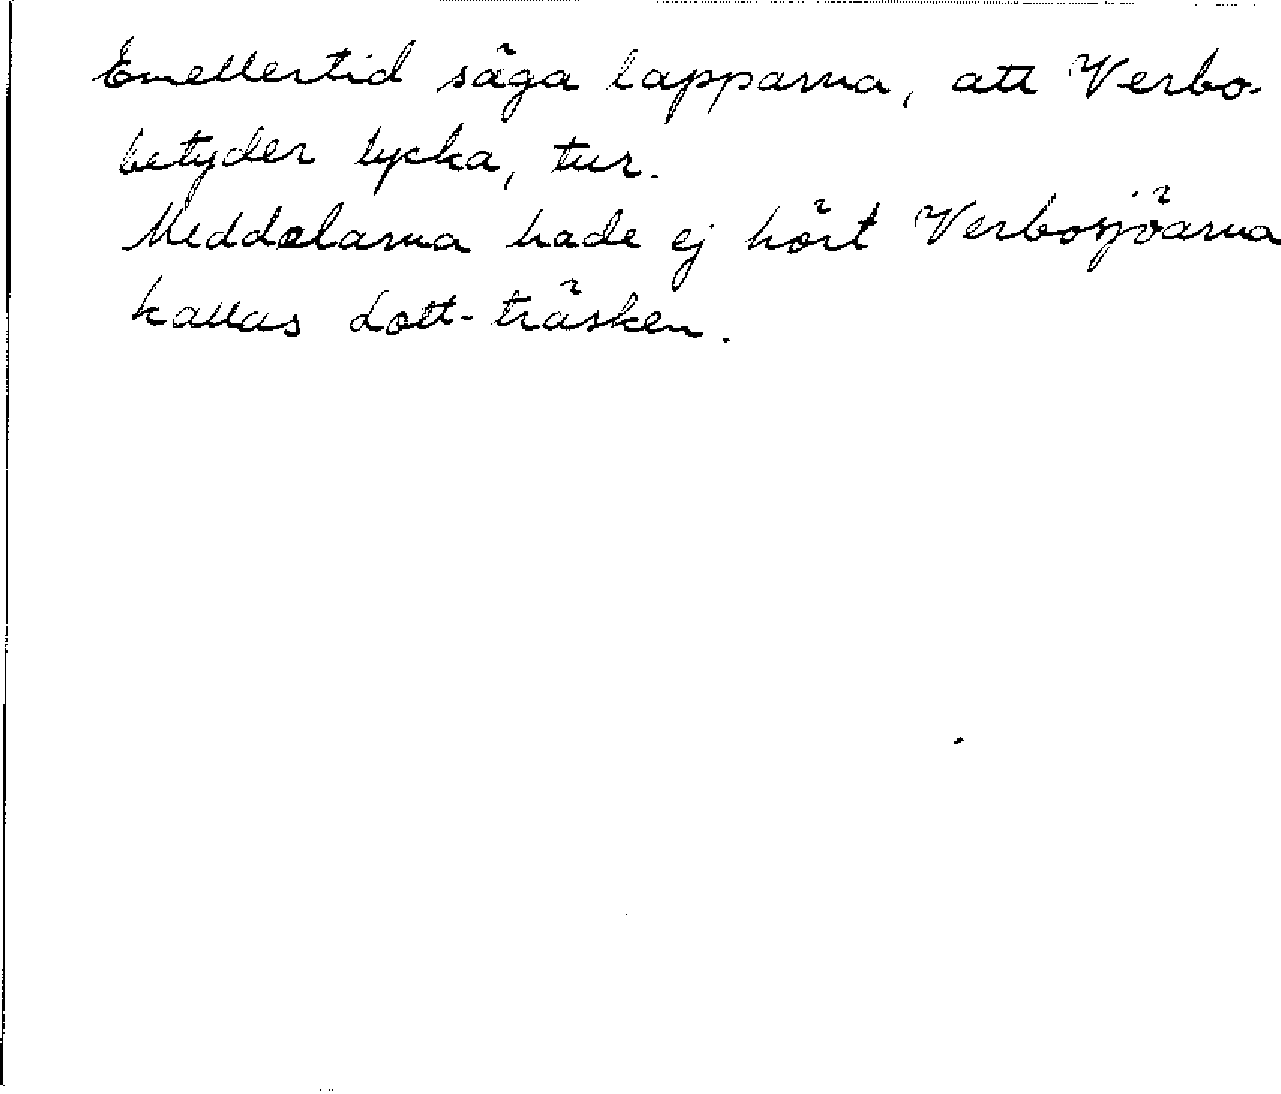 Emellertid säga lapparna, att Verbo-
betyder lycka, tur.
Meddelarna hade ej hört Verbosjöarna
kallas Lott-träsken.